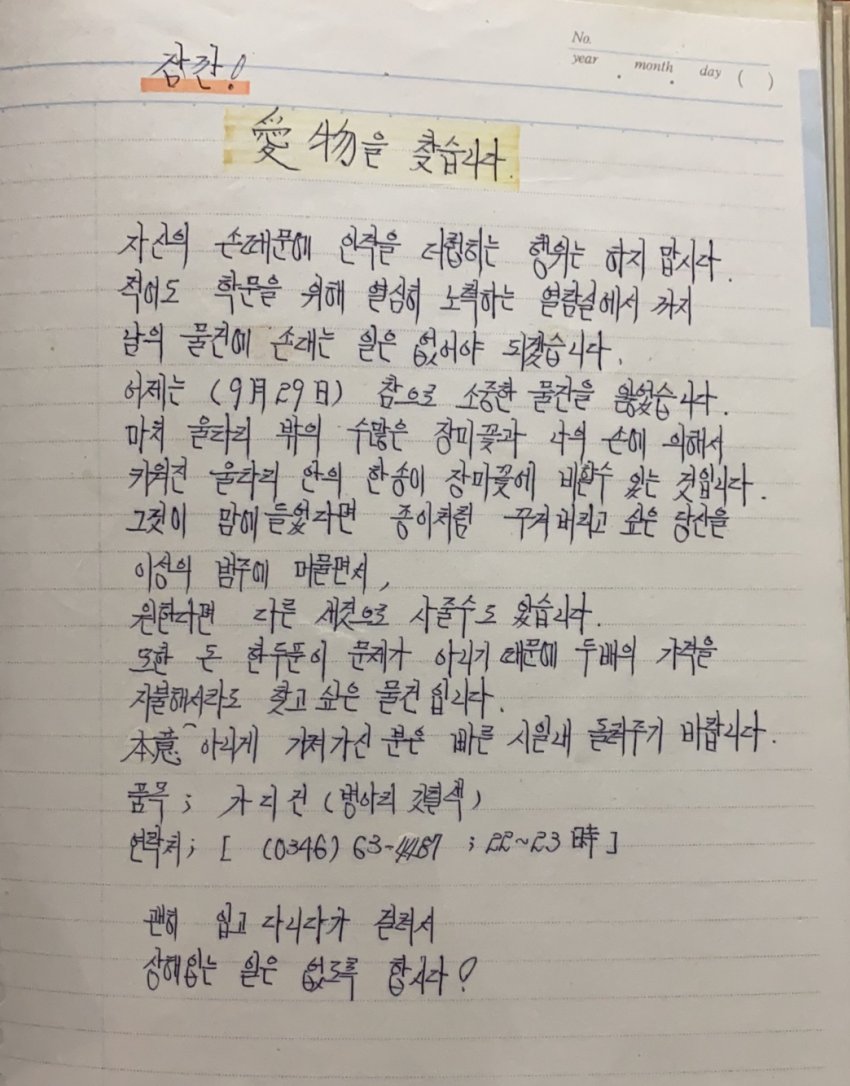 No.
year . month . day ( )
잠깐!
愛物을 찾습니다.
자신의 손때문에 인격을 더럽히는 행위는 하지 맙시다.
적어도 학문을 위해 열심히 노력하는 열람실에서 까지
남의 물건에 손대는 일은 없어야 되겠습니다.
어제는 (9月29日) 참으로 소중한 물건을 잃었습니다.
마치 울타리 밖의 수많은 장미꽃과 나의 손에 의해서
키워진 울타리 안의 한송이 장미꽃에 비할수 있는 것입니다.
그것이 맘에 들었다면 종이처럼 꾸겨버리고 싶은 당신을
이성의 범주에 머물면서,
원한다면 다른 새것으로 사줄수도 있습니다.
또한 돈 한두푼이 문제가 아니기 때문에 두배의 가격을
지불해서라도 찾고 싶은 물건입니다.
本意 아니게 가져가신 분은 빠른 시일내 돌려주기 바랍니다.
품목; 가디건 (병아리 깃털색)
연락처; [ (0346) 63-4487 ; 22~23時 ]
괜히 입고 다니다가 걸려서
상해입는 일은 없도록 합시다!